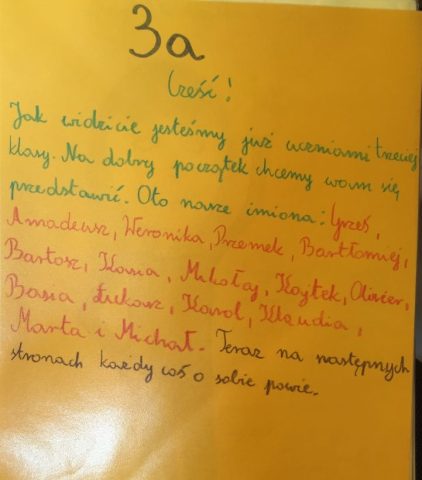 3a
Cześć!
Jak widzicie jesteśmy już uczniami trzeciej
klasy. Na dobry początek chcemy wam się
przedstawić. Oto nasze imiona: Grześ,
Amadeusz, Weronika, Przemek, Bartłomiej,
Bartosz, Kasia, Mikołaj, Wojtek, Oliwier,
Basia, Łukasz, Karol, Klaudia,
Marta i Michał. Teraz na następnych
stronach każdy coś o sobie powie.